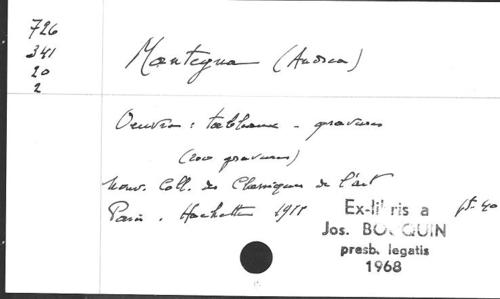 726
341
20
2
Mantegna (Andrea)
Oeuvres : tableaux - gravures
(200 gravures)
Nouv. Coll. des Classiques de l'art
Paris. Hachette 1911
Ex-libris a
Jos. BOCQUIN
presb. legatis
1968